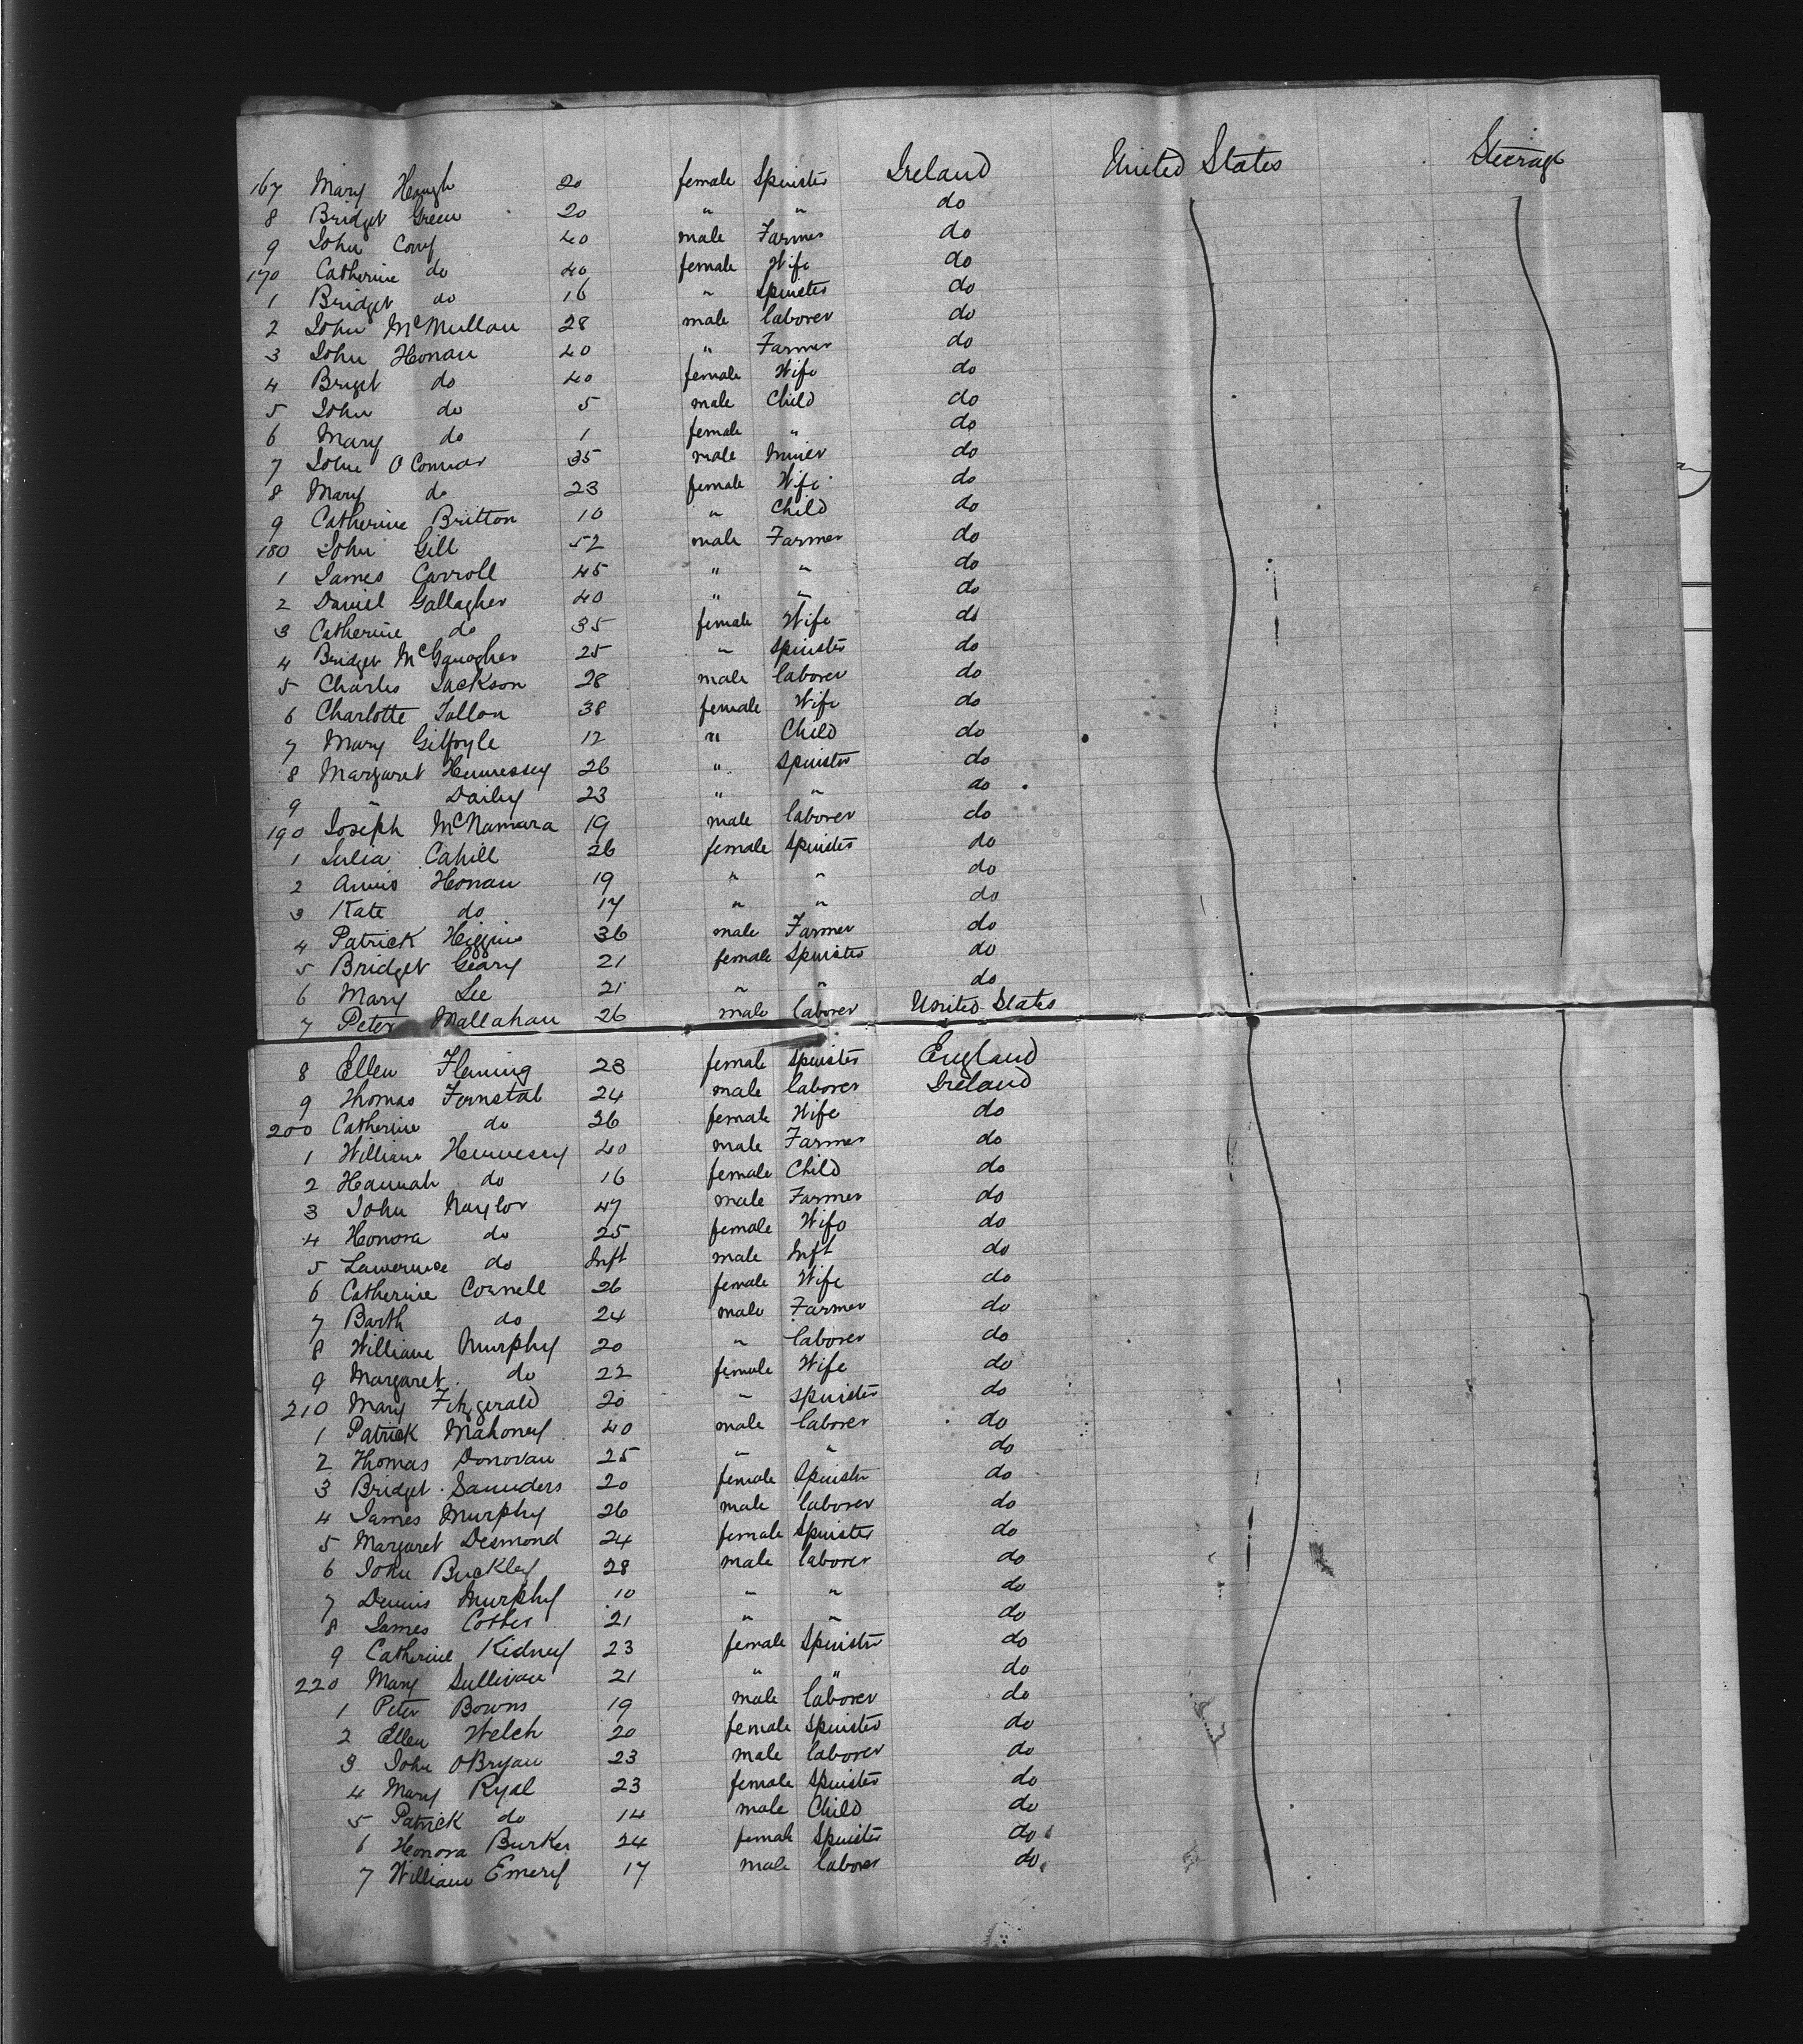 167 Mary Heugh 20 female Spinster Ireland United States Steerage
8 Bridget Green 20 " " do
9 John Conf 40 male Farmer do
170 Catherine do 40 female Wife do
1 Bridget do 16 " Spinster do
2 John McMullan 28 male laborer do
3 John Honan 40 " Farmer do
4 Briget do 40 female Wife do
5 John do 5 male Child do
6 Mary do 1 female " do
7 John O Connor 35 male Miner do
8 Mary do 23 female Wife do
9 Catherine Britton 10 " Child do
180 John Gill 52 male Farmer do
1 James Carroll 45 " " do
2 Daniel Gallagher 40 " " do
3 Catherine do 35 female Wife do
4 Bridget McGaugher 25 " Spinster do
5 Charles Jackson 28 male laborer do
6 Charlotte Tallon 38 female Wife do
7 Mary Gilfoyle 12 " Child do
8 Margaret Hennessey 26 " Spinster do
9 " Daily 23 " " do
190 Joseph McNamara 19 male laborer do
1 Julia Cahill 26 female Spinster do
2 Annis Honan 19 " " do
3 Kate do 17 " " do
4 Patrick Higgins 36 male Farmer do
5 Bridget Geary 21 female Spinster do
6 Mary Lee 21 " " do
7 Peter Mallahan 26 male laborer United States
8 Ellen Fleming 23 female Spinster England
9 Thomas Fornstal 24 male laborer Ireland
200 Catherine do 26 female Wife do
1 William Hennessy 40 male Farmer do
2 Hannah do 16 female Child do
3 John Naylor 47 male Farmer do
4 Honora do 25 female Wife do
5 Lawrence do Inft male Inft do
6 Catherine Connell 26 female Wife do
7 Barth do 24 male Farmer do
8 William Murphy 20 " laborer do
9 Margaret do 22 female Wife do
210 Mary Fitzgerald 20 " Spinster do
1 Patrick Mahoney 40 male laborer do
2 Thomas Donovan 25 " " do
3 Bridget Saunders 20 female Spinster do
4 James Murphy 26 male laborer do
5 Margaret Desmond 24 female Spinster do
6 John Buckley 28 male laborer do
7 Dennis Murphy 10 " " do
8 James Cotter 21 " " do
9 Catherine Kidney 23 female Spinster do
220 Mary Sullivan 21 " " do
1 Peter Bowns 19 male laborer do
2 Ellen Welch 20 female Spinster do
3 John OBryan 23 male laborer do
4 Mary Ryal 23 female Spinster do
5 Patrick do 14 male Child do
6 Honora Burker 24 female Spinster do
7 William Emery 17 male laborer do